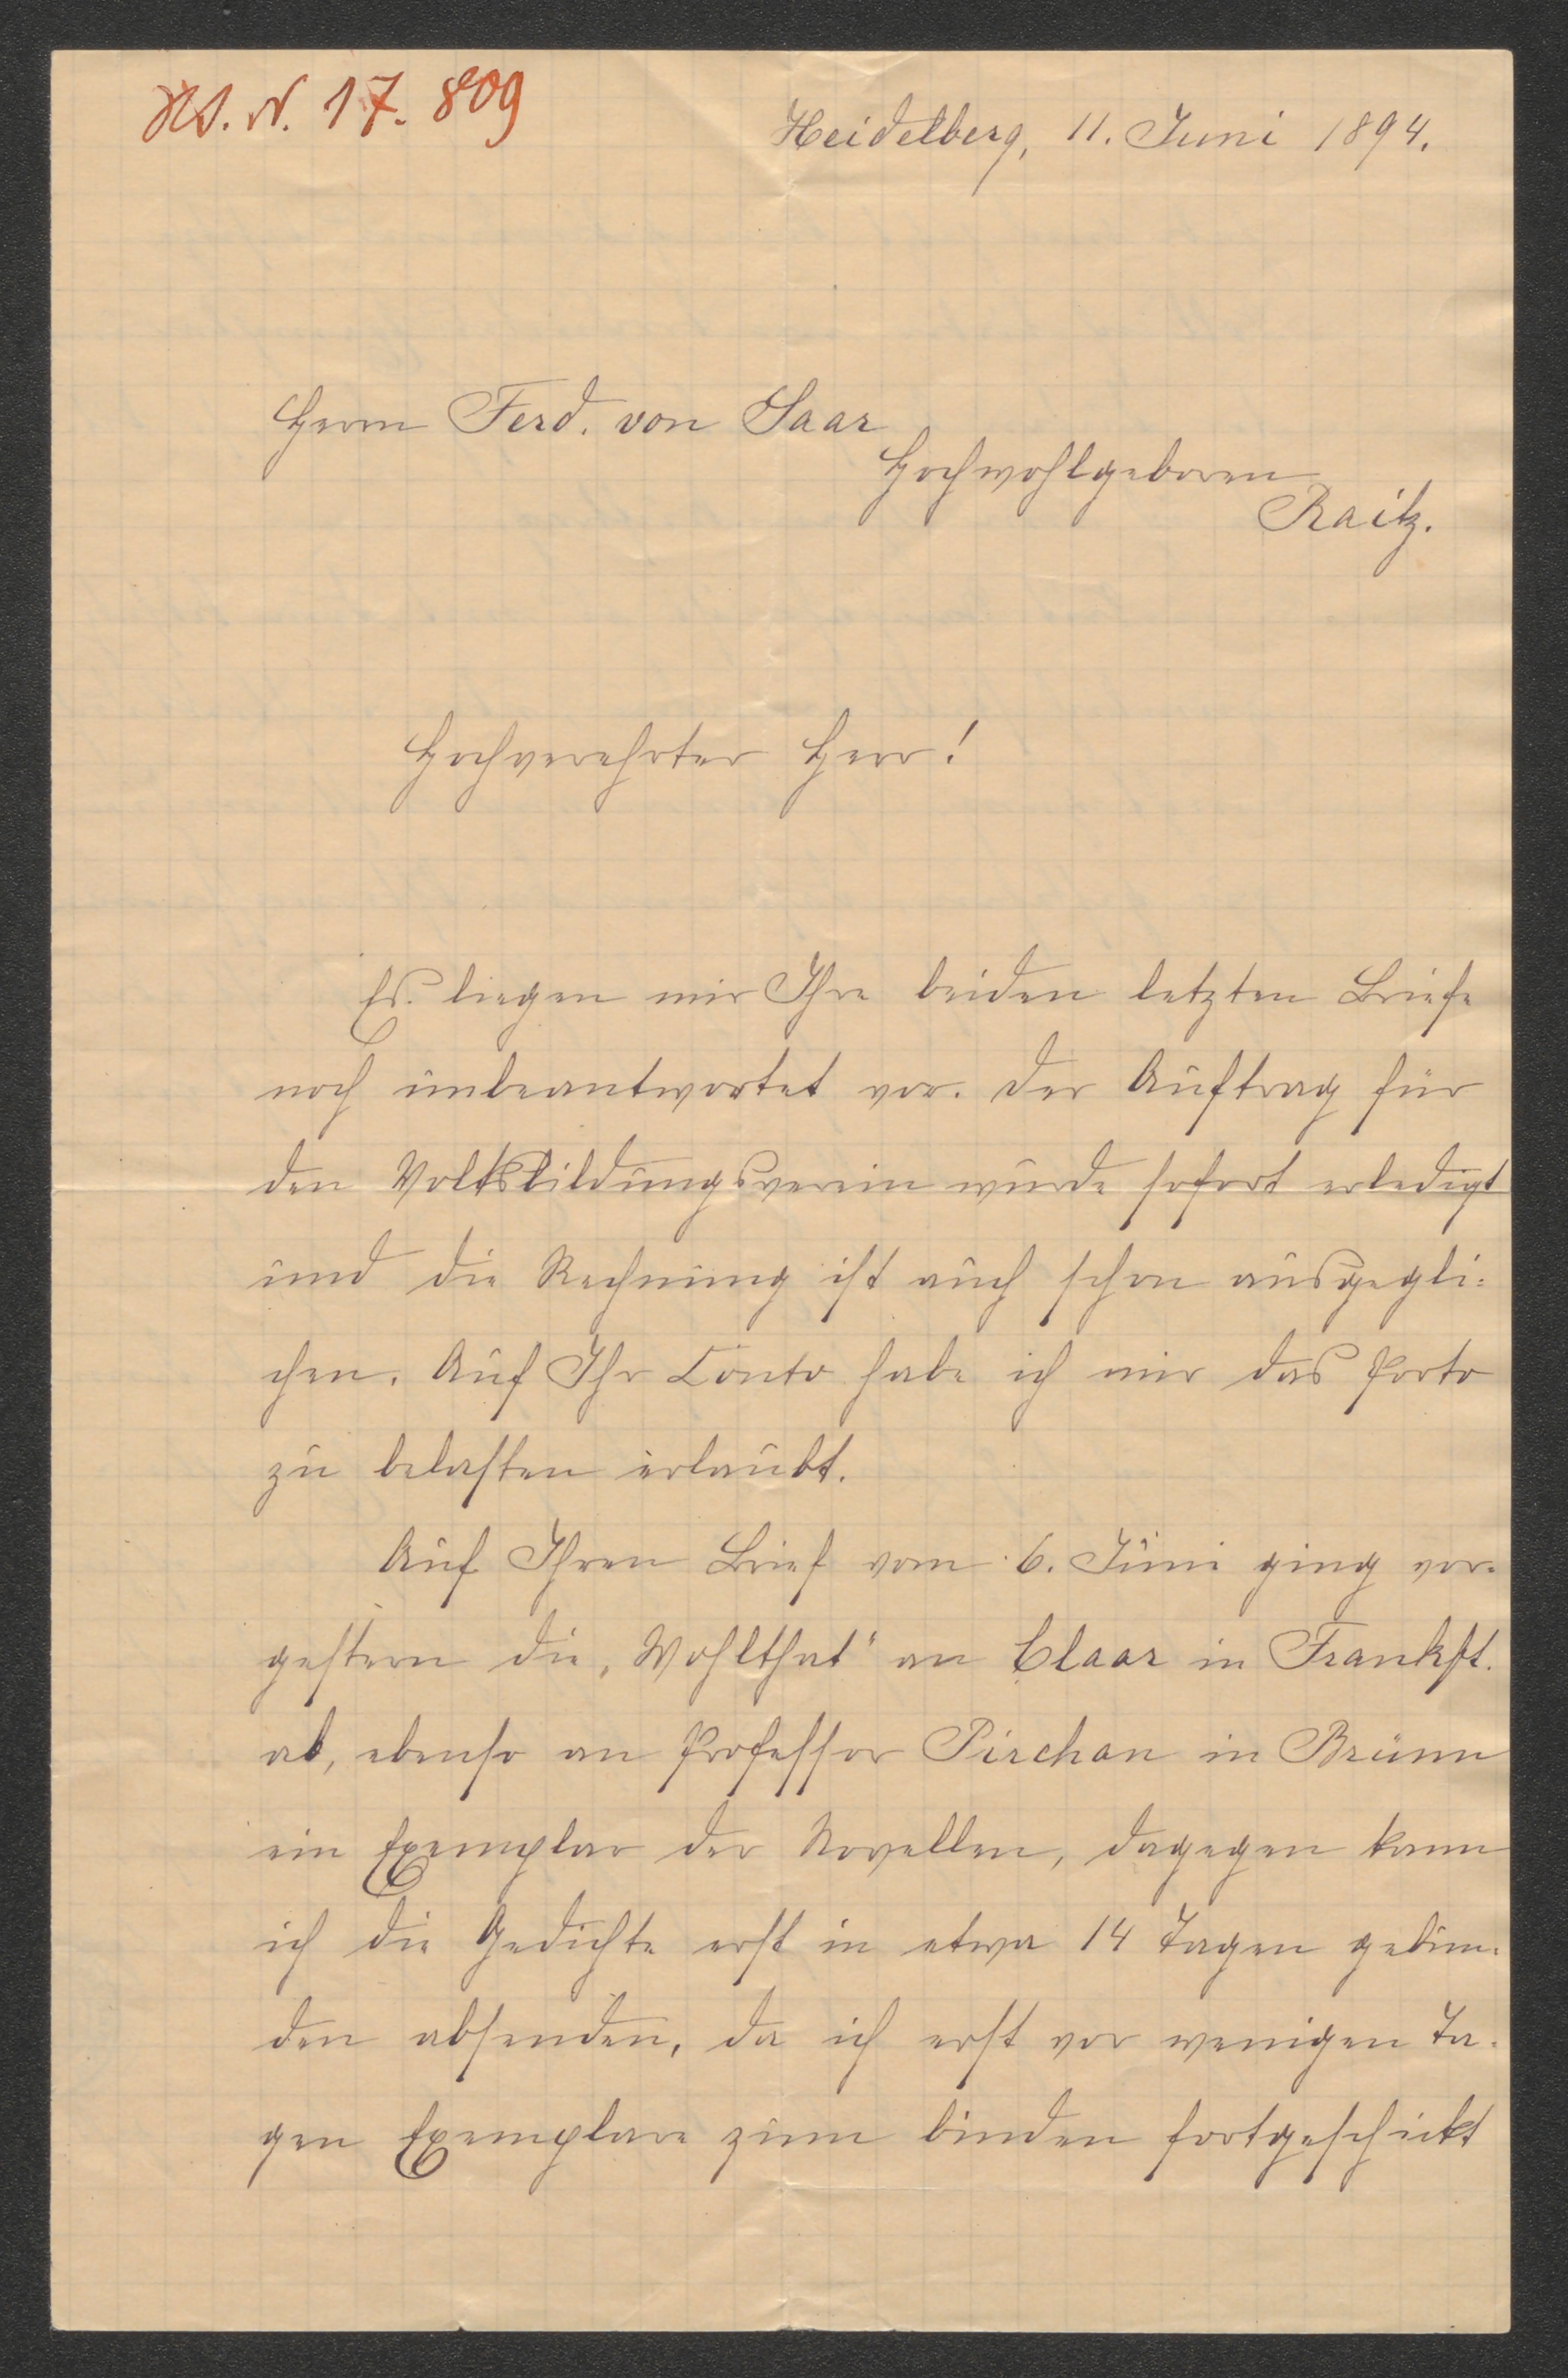 Hs. N. 17.809
Heidelberg, 11. Juni 1894.
Herrn Ferd. von Saar
Hochwohlgeboren
Raitz.
Hochverehrter Herr!
Es liegen mir Ihre beiden letzten Briefe
noch unbeantwortet vor. Der Auftrag für
den Volksbildungsverein wurde sofort erledigt
und die Rechnung ist auch schon ausgegli-
chen. Auf Ihr Conto habe ich mir das Porto
zu belasten erlaubt.
Auf Ihren Brief vom 6. Juni ging vor-
gestern die „Wohlthat" an Claar in Frankft.
ab, ebenso an Professor Pirchan in Brünn
ein Exemplar der Novellen, dagegen kann
ich die Gedichte erst in etwa 14 Tagen gebun-
den absenden, da ich erst vor wenigen Ta-
gen Exemplare zum binden fortgeschickt